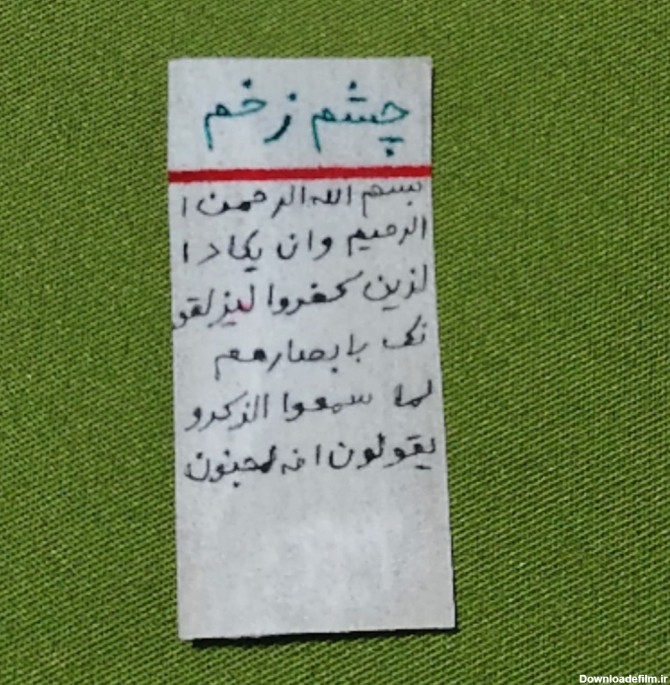 چشم زخم
بسم الله الرحمن ا
الرحیم وان یکاد ا
لذین کفروا لیزلقو
نک بابصارهم
لما سمعوا الذکرو
یقولون انه لمجنون
Downloadefilm.ir